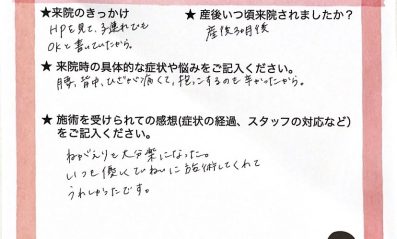 ★来院のきっかけ
HPを見て、子連れでも
OKと書いていたから。
★産後いつ頃来院されましたか？
産後3ヶ月後
★来院時の具体的な症状や悩みをご記入ください。
腰、背中、ひざが痛くて、抱っこするのも辛かったから。
★施術を受けられての感想(症状の経過、スタッフの対応など)
をご記入ください。
ねがえりも大分楽になった。
いつも優しくていねいに施術してくれて
うれしかったです。